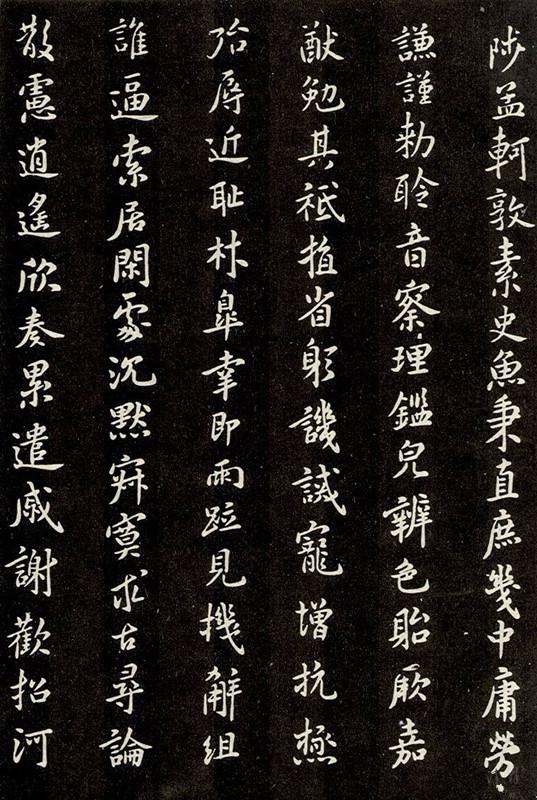 陟孟軻敦素史魚秉直庶幾中庸勞
謙謹勅聆音察理鑑皃辨色貽厥嘉
猷勉其祗植省躬譏誡寵增抗極
殆辱近耻林皐幸即兩疏見機解組
誰逼索居閑處沉默寂寥求古尋論
散慮逍遙欣奏累遣慼謝歡招河